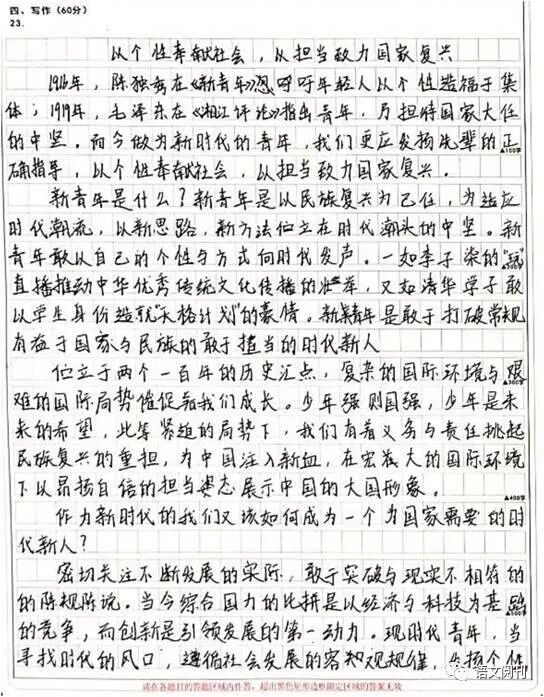 四、写作（60分）
23.
以个性奉献社会，从担当致力国家复兴
1916年，陈独秀在《新青年》呼吁年轻人以个性造福于集
体；1919年，毛泽东在《湘江评论》指出青年，乃担特国家大任
的中坚。而今做为新时代的青年，我们更应发扬先辈的正
▲100字
确指导，以个性奉献社会，以担当致力国家复兴。
新青年是什么？新青年是以民族复兴为己任，为适应
时代潮流，以新思路，新方法伫立在时代潮头的中坚。新
青年敢以自己的个性与方式向时代发声。一如李子柒的
▲200字
直播推动中华优秀传统文化传播的壮举，又如清华学子敢
以学生身份造就"天格计划"的豪情。新青年是敢于打破常规
有益于国家与民族的敢于担当的时代新人
伫立于两个一百年的历史汇点，复杂的国际环境与艰
▲300字
难的国际局势催促着我们成长。少年强则国强，少年是未
来的希望，此等紧迫的局势下，我们有着义务与责任挑起
民族复兴的重担，为中国注入新血，在宏大的国际环境
下以昂扬自信的担当姿态展示中国的大国形象。
▲400字
作为新时代的我们又该如何成为一个为国家需要的时
代新人？
密切关注不断发展的实际，敢于突破与现实不相符的
的陈规陈说。当今综合国力的比拼是以经济与科技为基础
的竞争，而创新是引领发展的第一动力。现时代青年，当
寻找时代的风口，遵循社会发展的客观规律，发扬个性
请在各题目的答题区域内作答，超出黑色矩形边框限定区域的答案无效
语文周刊